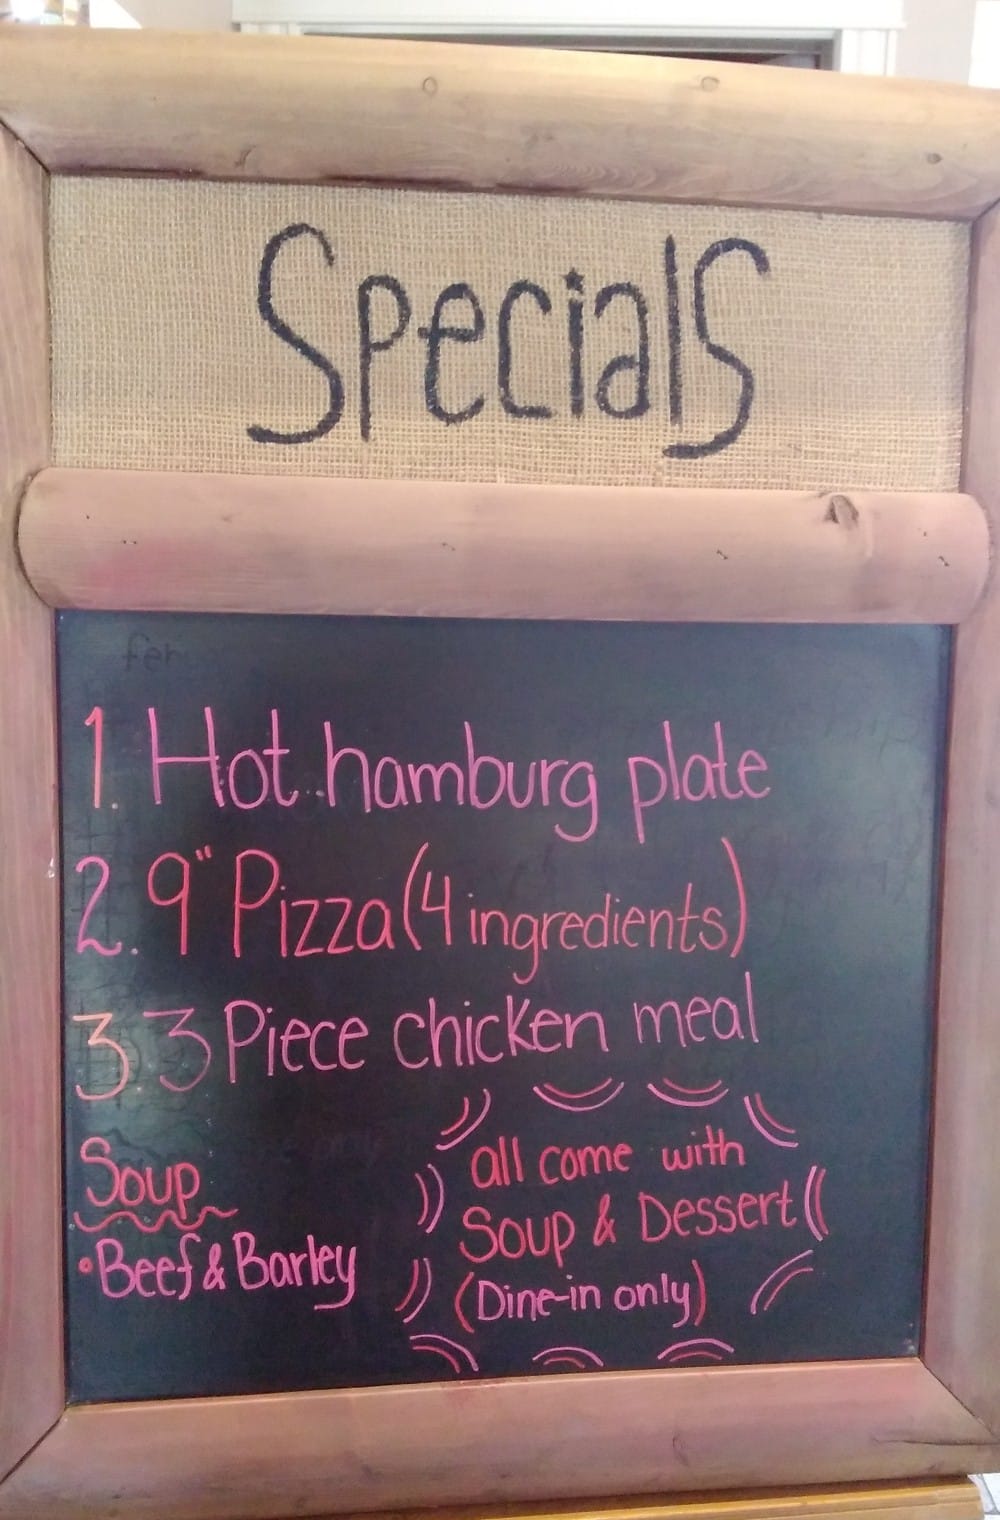 Specials
1. Hot hamburg plate
2. 9" Pizza (4 ingredients)
3. 3 Piece chicken meal
Soup
• Beef & Barley
all come with
Soup & Dessert
(Dine-in only)